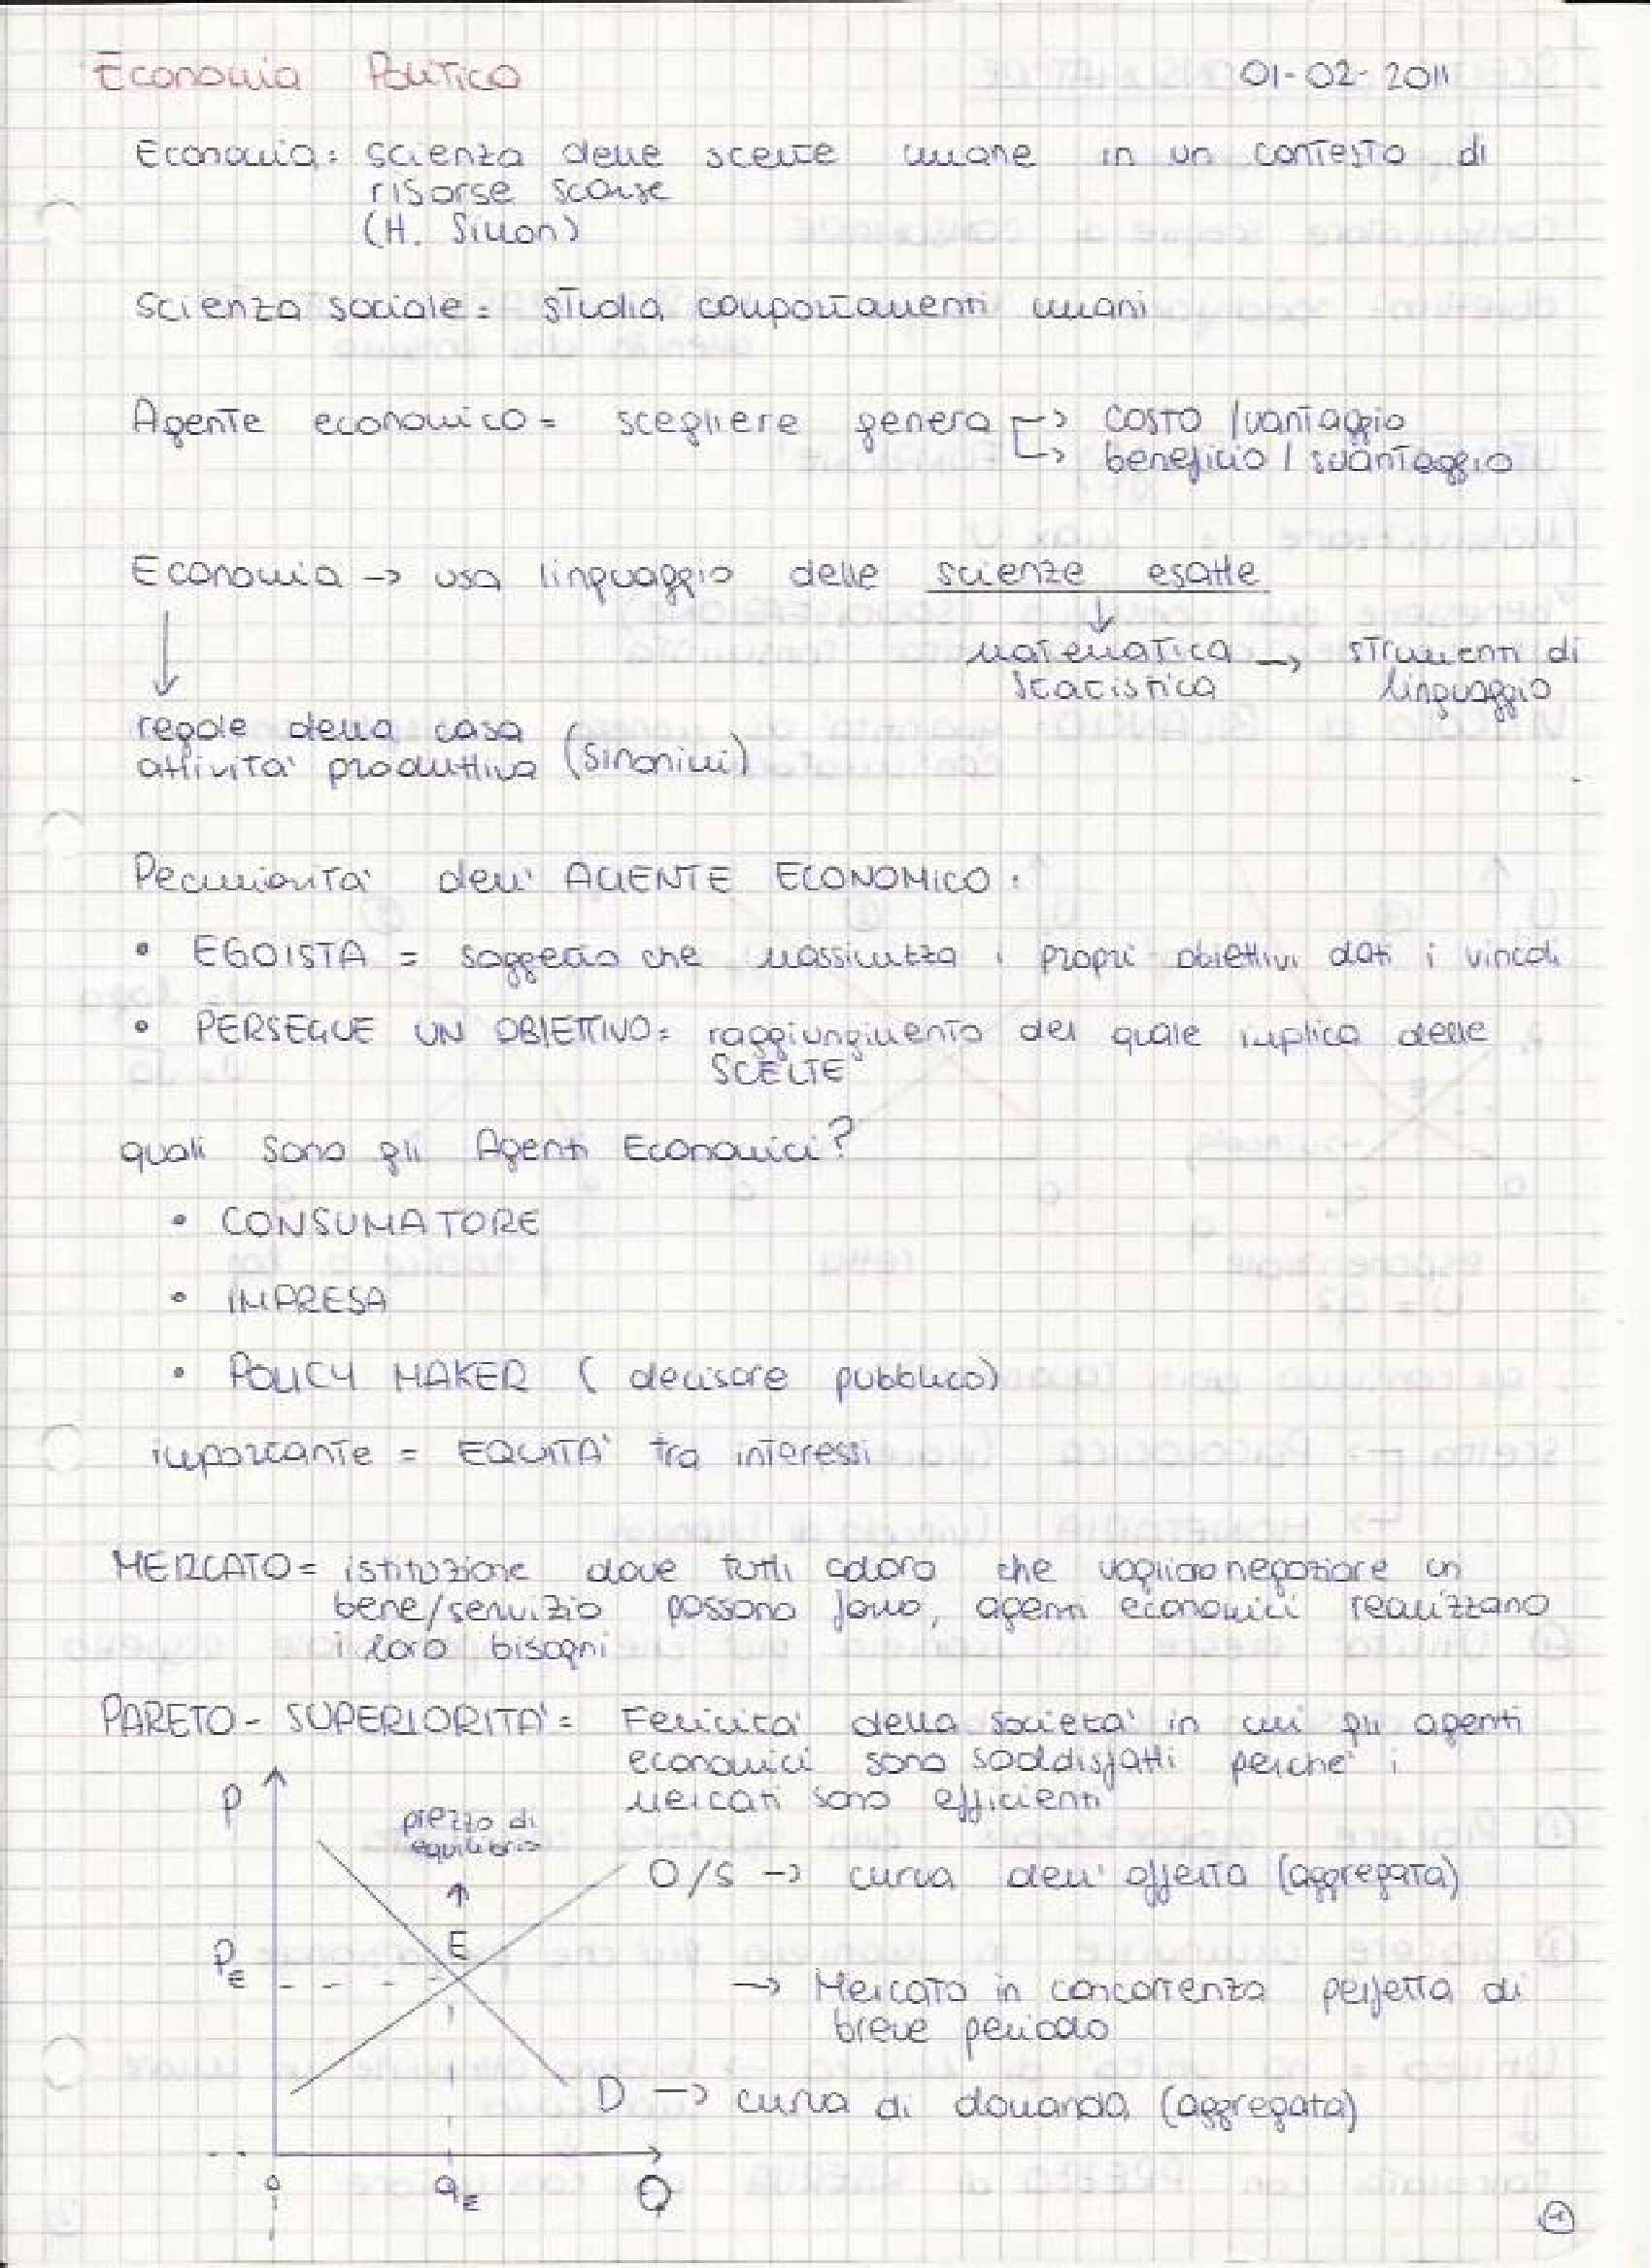 Economia Politica 01-02-2011
Economia: scienza delle scelte umane in un contesto di
risorse scarse
(H. Simon)
scienza sociale = studia comportamenti umani
Agente economico = scegliere genera → costo / vantaggio
→ beneficio / svantaggio
Economia → usa linguaggio delle scienze esatte
↓
matematica → strumenti di
statistica linguaggio
↓
regole della casa
attività produttiva (sinonimi)
Peculiarità dell' AGENTE ECONOMICO:
• EGOISTA = soggetto che massimizza i propri obiettivi dati i vincoli
• PERSEGUE UN OBIETTIVO = raggiungimento del quale implica delle
SCELTE
quali sono gli Agenti Economici?
• CONSUMATORE
• IMPRESA
• POLICY MAKER (decisore pubblico)
importante = EQUITA' tra interessi
MERCATO = istituzione dove tutti coloro che vogliono negoziare un
bene/servizio possono farlo, agenti economici realizzano
i loro bisogni
PARETO - SUPERIORITA' = Felicità della società in cui gli agenti
economici sono soddisfatti perché i
mercati sono efficienti
P
prezzo di
equilibrio
↑
O/S → curva dell' offerta (aggregata)
E
PE
→ Mercato in concorrenza perfetta di
breve periodo
D → curva di domanda (aggregata)
0 qE Q
1